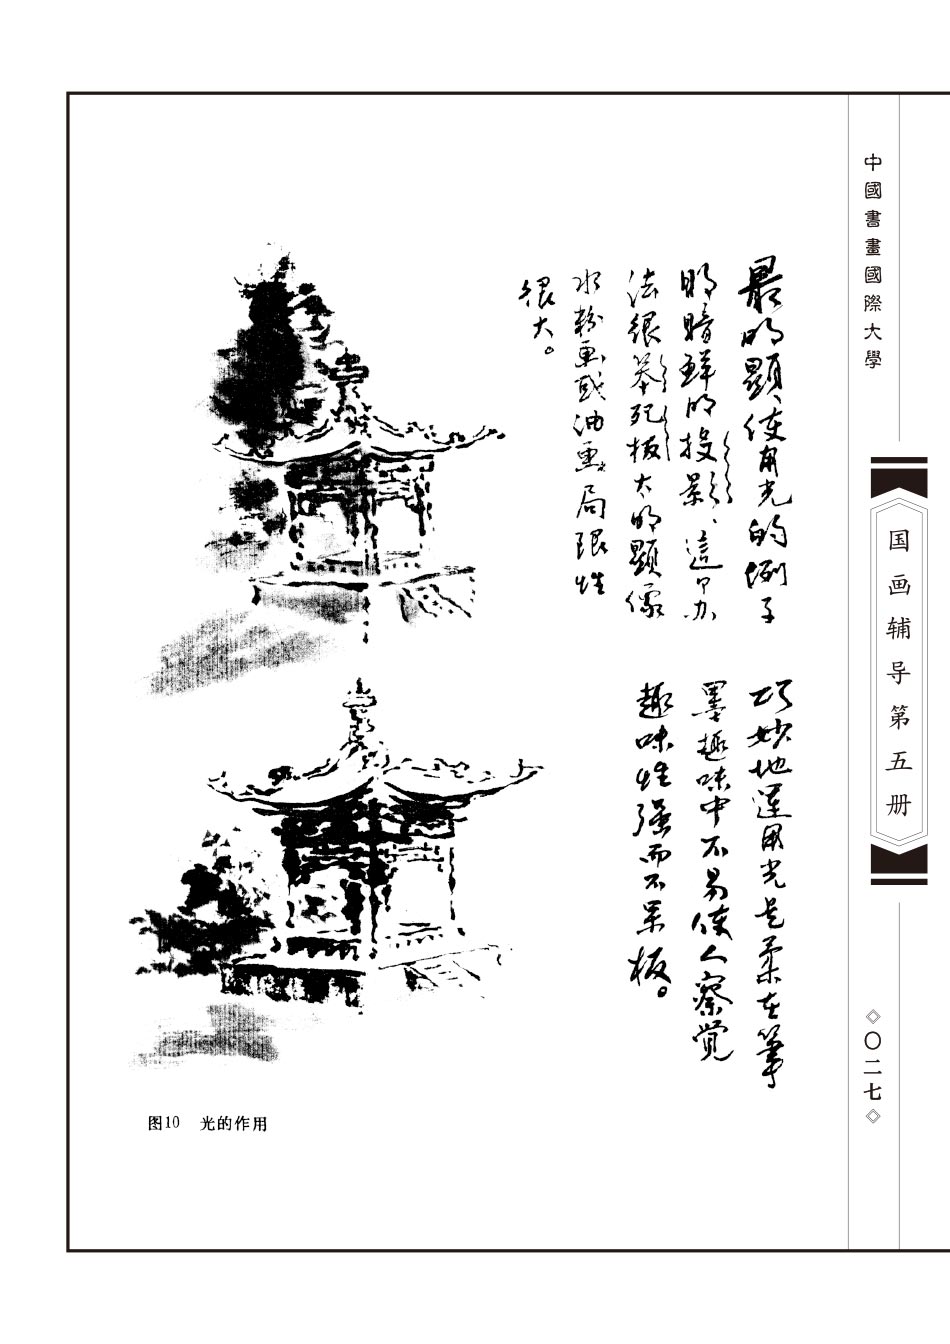 中國書畫國際大學
国画辅导第五册
◇〇二七◇
最明顯使用光的例子
明暗鲜明投影、這个办
法很笨死板太明顯像
水粉画或油画局限性
很大。
巧妙地運用光是柔在筆
墨趣味中不易使人察觉
趣味性强而不呆板。
图10 光的作用